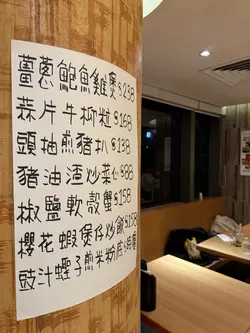 薑蔥鮑魚雞煲$238
蒜片牛柳粒$168
頭抽煎豬扒$138
豬油渣炒菜心$88
椒鹽軟殼蟹$158
櫻花蝦煲仔炒飯$158
豉汁蟶子煎米粉底$時價